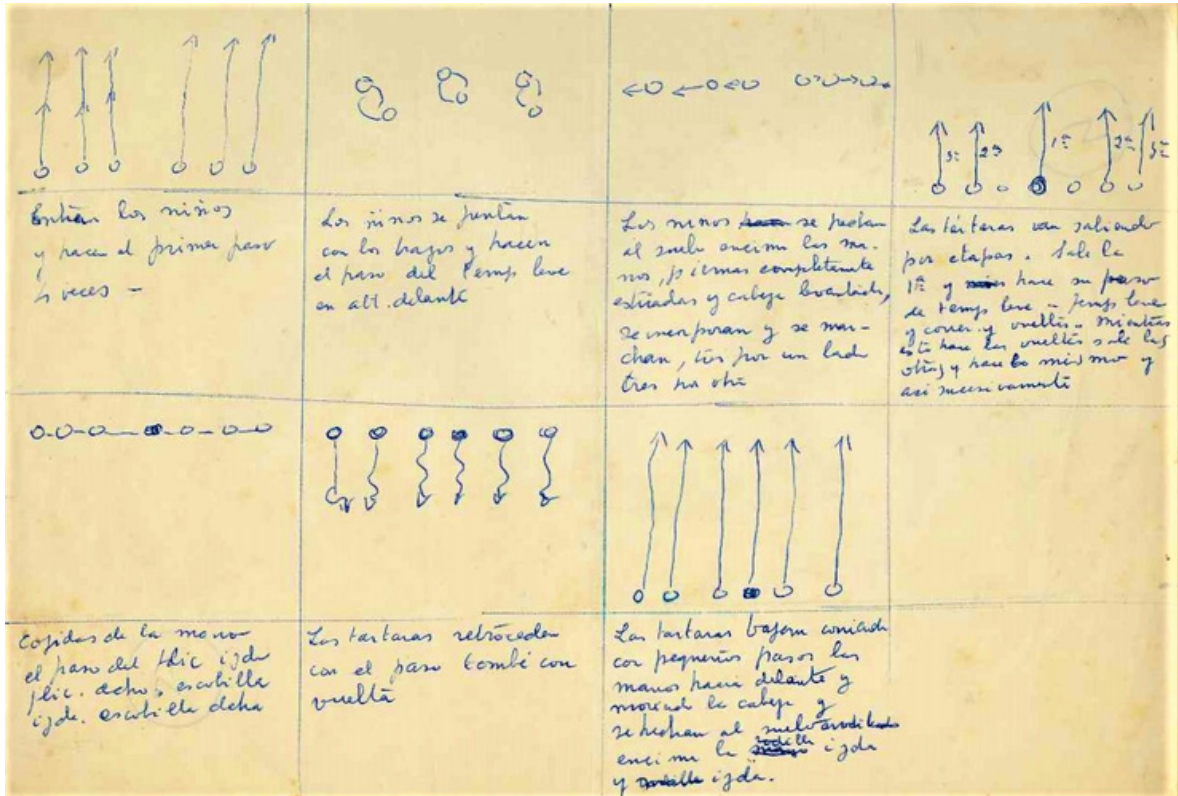 3ª 2ª 1ª 2ª 3ª
Entran los niños
y hacen el primer paso
4 veces —
Los niños se juntan
con los brazos y hacen
el paso del temps leve
en att. delante
Los niños se hechan
al suelo encima las ma-
nos, piernas completamente
estiradas y cabeza levantada,
se incorporan y se mar-
chan, tres por un lado
tres por otro
Las tártaras van saliendo
por etapas. Sale la
1ª y hace su paso
de temps leve — temps leve
y correr y vueltas. Mientras
esta hace las vueltas sale las
otras y hace lo mismo y
asi sucesivamente
Cojidas de la mano
el paso del flic izda
flic. dcho, escobilla
izda. escobilla dcha
Las tartaras retroceden
con el paso tombé con
vuelta
Las tartaras bajan corriendo
con pequeños pasos las
manos hacia delante y
moviendo la cabeza y
se hechan al suelo
encima la rodilla izda
y izda.